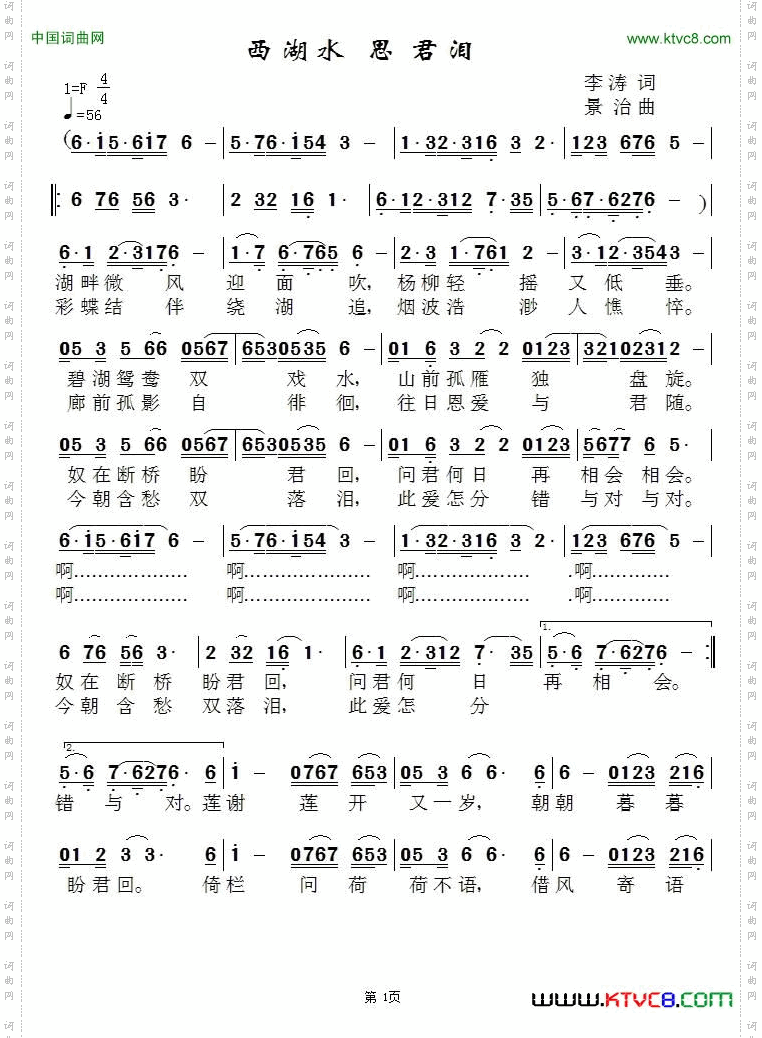 中国词曲网
西湖水 思君泪
www.ktvc8.com
1=F 4/4
♩=56
李涛 词
景治 曲
(6·i5·6i7 6 – | 5·76·i54 3 – | 1·32·316 3 2· | 123 676 5 – |
|: 6 76 56 3· | 2 32 16 1· | 6·12·312 7·35 | 5·67·6276 – ) |
6·1 2·3176 – | 1·7 6·765 6 – | 2·3 1·761 2 – | 3·12·3543 – |
湖畔微 风 迎 面 吹, 杨柳轻 摇 又 低 垂。
彩蝶结 伴 绕 湖 追, 烟波浩 渺 人 憔 悴。
05 3 5 66 0567 | 6530535 6 – | 01 6 3 2 2 0123 | 32102312 – |
碧湖鸳鸯 双 戏 水, 山前孤雁 独 盘 旋。
廊前孤影 自 徘 徊, 往日恩爱 与 君 随。
05 3 5 66 0567 | 6530535 6 – | 01 6 3 2 2 0123 | 5677 6 5· |
奴在断桥 盼 君 回, 问君何日 再 相会 相会。
今朝含愁 双 落 泪, 此爱怎分 错 与对 与对。
6·i5·6i7 6 – | 5·76·i54 3 – | 1·32·316 3 2· | 123 676 5 – |
啊................... 啊................... 啊................... .啊...................
啊................... 啊................... 啊................... .啊...................
6 76 56 3· | 2 32 16 1· | 6·1 2·312 7· 35 | 1. 5·6 7·6276 – :|
奴在 断 桥 盼君 回, 问君何 日 再 相 会。
今朝 含 愁 双落 泪, 此爱怎 分
2. 5·6 7·6276· 6 | i – 0767 653 | 05 3 6 6· 6 | 6 – 0123 216 |
错 与 对。莲谢 莲 开 又一岁, 朝朝 暮 暮
01 2 3 3· 6 | i – 0767 653 | 05 3 6 6· 6 | 6 – 0123 216 |
盼君回。 倚栏 问 荷 荷不语, 借风 寄 语
第 1页
www.KTVC8.com